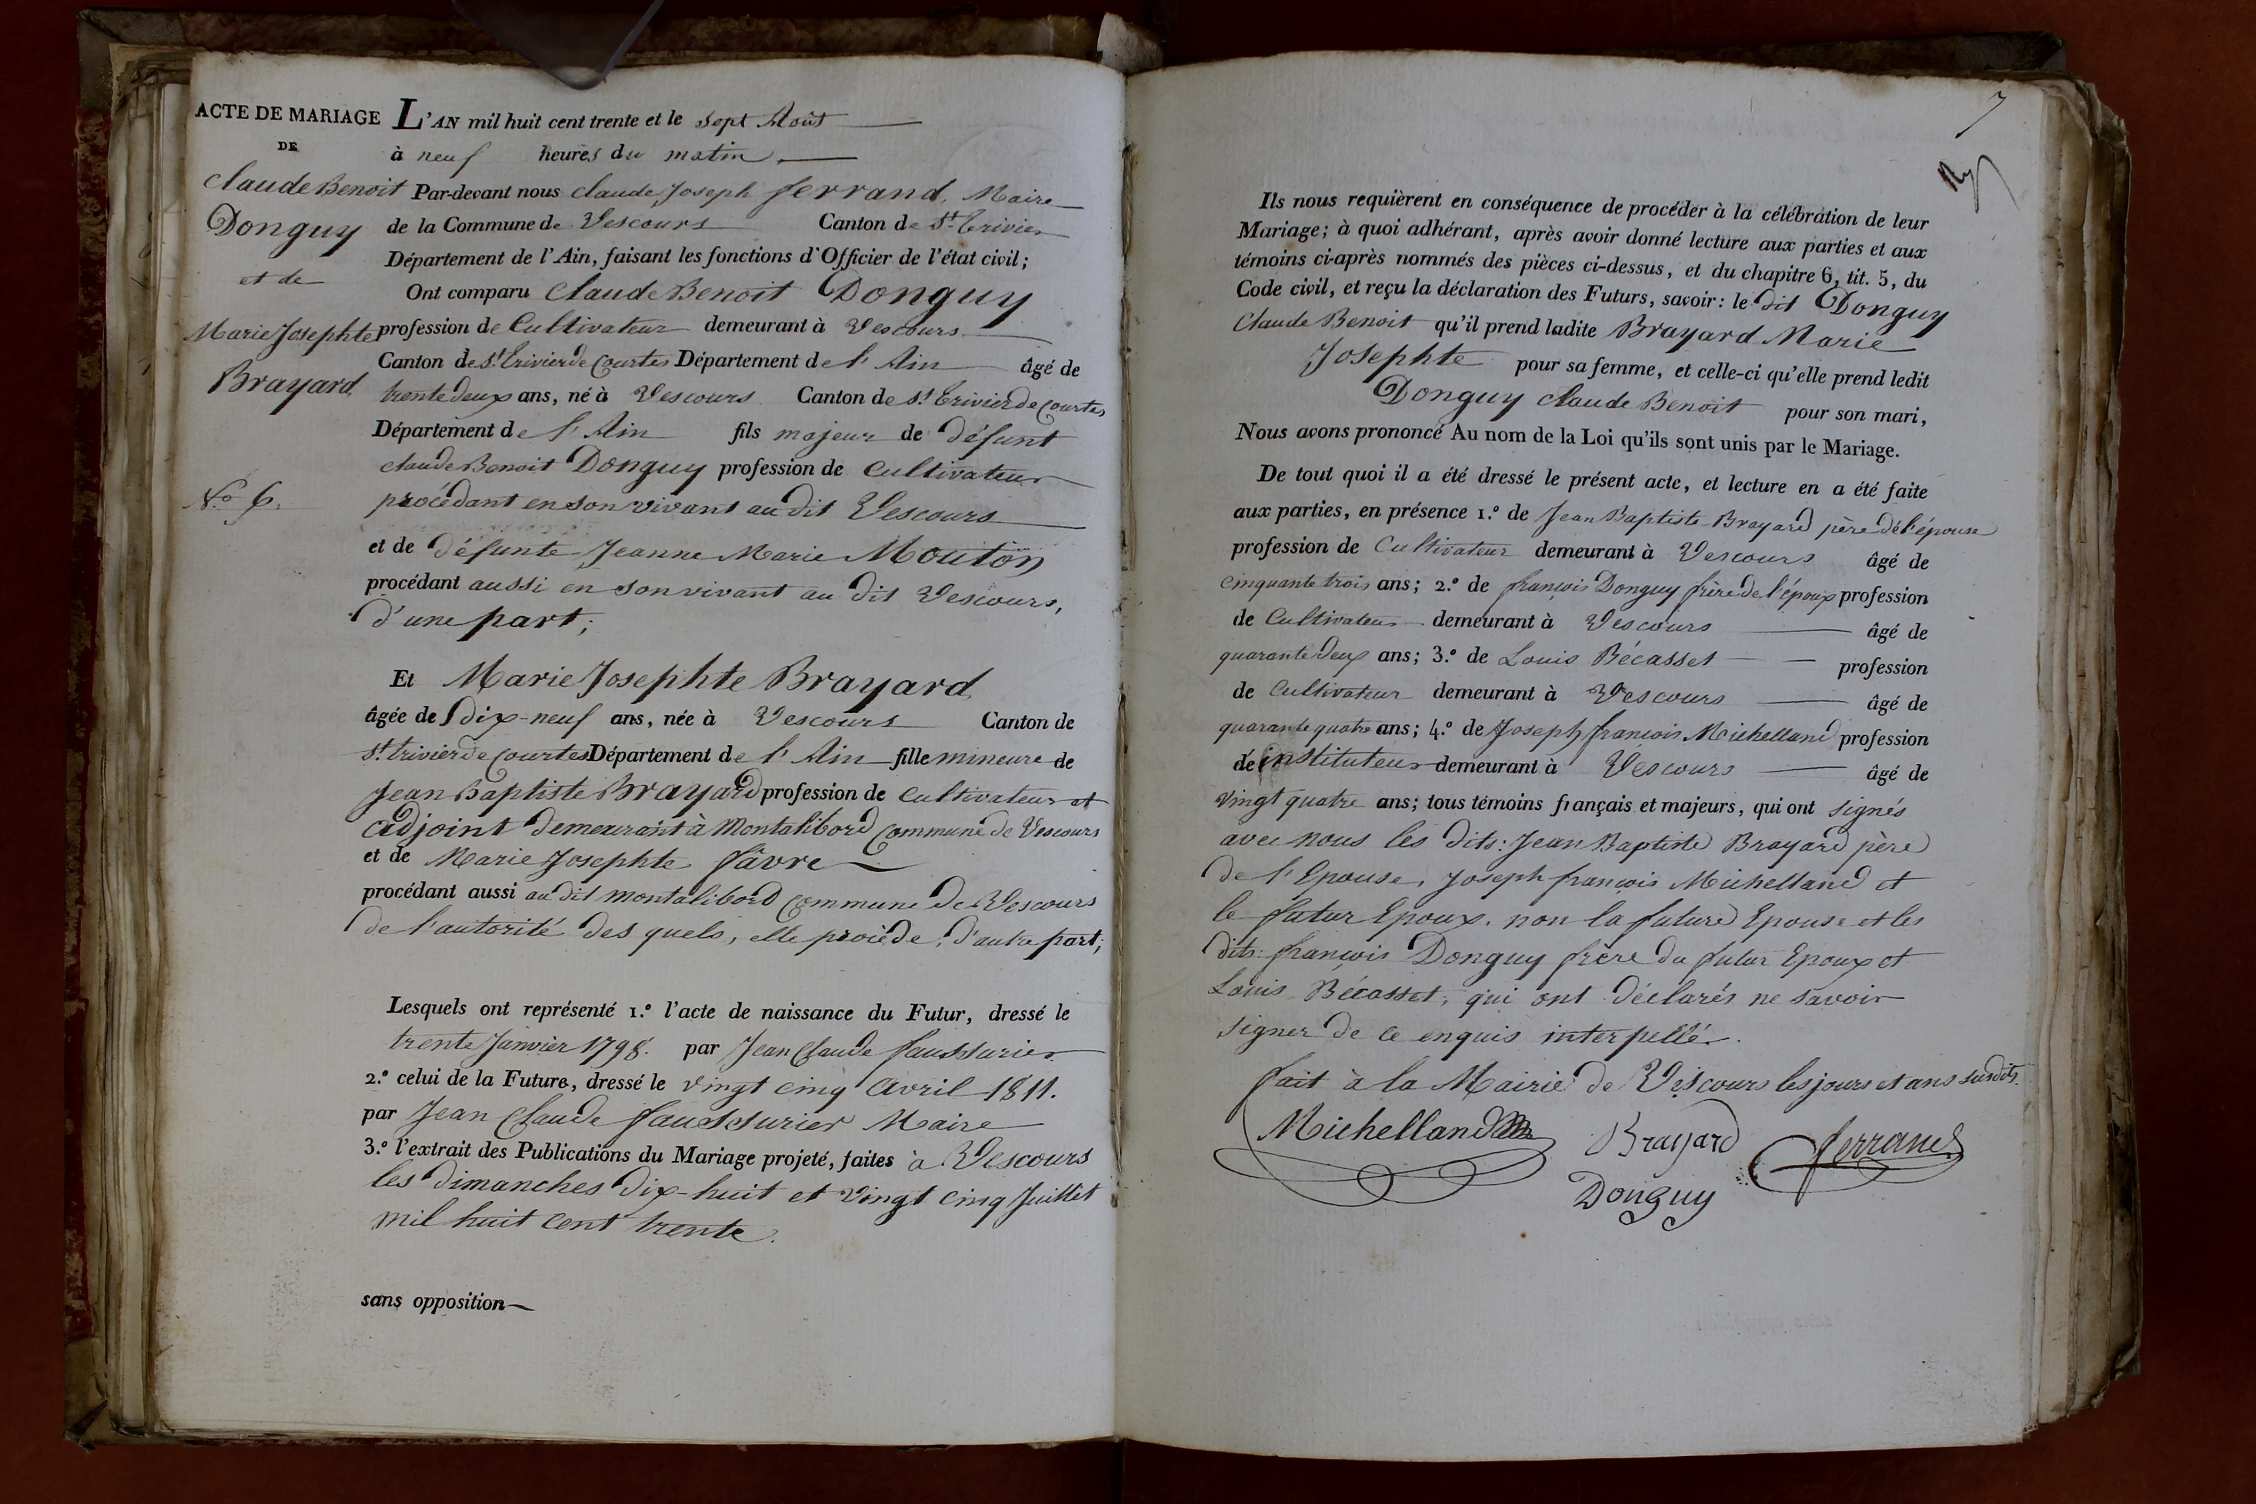 ACTE DE MARIAGE
DE
Claude Benoit
Donguy
et de
Marie Josephte
Brayard
N.o 6.
L'AN mil huit cent trente et le sept Août
à neuf heures du matin
Par-devant nous Claude Joseph ferrand, Maire
de la Commune de Vescours Canton de St. Trivier
Département de l'Ain, faisant les fonctions d'Officier de l'état civil;
Ont comparu Claude Benoit Donguy
profession de Cultivateur demeurant à Vescours
Canton de St. Trivier de Courtes Département de l'Ain âgé de
trente deux ans, né à Vescours Canton de St Trivier de Courtes
Département de l'Ain fils majeur de défunt
Claude Benoit Donguy profession de Cultivateur
procédant en son vivant au dit Vescours
et de défunte Jeanne Marie Mouton
procédant aussi en son vivant au dit Vescours,
d'une part;
Et Marie Josephte Brayard
âgée de dix-neuf ans, née à Vescours Canton de
St. Trivier de Courtes Département de l'Ain fille mineure de
Jean Baptiste Brayard profession de Cultivateur et
adjoint demeurant à Montalibord Commune de Vescours
et de Marie Josephte fâvre
procédant aussi au dit montalibord Commune de Vescours
de l'autorité des quels, elle procède, d'autre part;
Lesquels ont représenté 1.o l'acte de naissance du Futur, dressé le
trente Janvier 1798. par Jean Claude faussurier
2.o celui de la Future, dressé le vingt cinq Avril 1811.
par Jean Claude faussurier Maire
3.o l'extrait des Publications du Mariage projeté, faites à Vescours
les dimanches dix-huit et vingt cinq Juillet
mil huit cent trente.
sans opposition
7
Ils nous requièrent en conséquence de procéder à la célébration de leur
Mariage; à quoi adhérant, après avoir donné lecture aux parties et aux
témoins ci-après nommés des pièces ci-dessus, et du chapitre 6, tit. 5, du
Code civil, et reçu la déclaration des Futurs, savoir: le dit Donguy
Claude Benoit qu'il prend ladite Brayard Marie
Josephte pour sa femme, et celle-ci qu'elle prend ledit
Donguy Claude Benoit pour son mari,
Nous avons prononcé Au nom de la Loi qu'ils sont unis par le Mariage.
De tout quoi il a été dressé le présent acte, et lecture en a été faite
aux parties, en présence 1.o de Jean Baptiste Brayard père de l'épouse
profession de Cultivateur demeurant à Vescours âgé de
cinquante trois ans; 2.o de françois Donguy frère de l'époux profession
de Cultivateur demeurant à Vescours âgé de
quarante deux ans; 3.o de Louis Bécasset profession
de Cultivateur demeurant à Vescours âgé de
quarante quatre ans; 4.o de Joseph françois Michelland profession
de instituteur demeurant à Vescours âgé de
vingt quatre ans; tous témoins français et majeurs, qui ont signés
avec nous les dits: Jean Baptiste Brayard père
de l'Epouse, Joseph françois Michelland et
le futur Epoux, non la future Epouse et les
dits: françois Donguy frère du futur Epoux et
Louis Bécasset, qui ont déclarés ne savoir
signer de ce enquis interpellés.
fait à la Mairie de Vescours les jours et ans susdits.
Michelland Brayard ferrand
Donguy